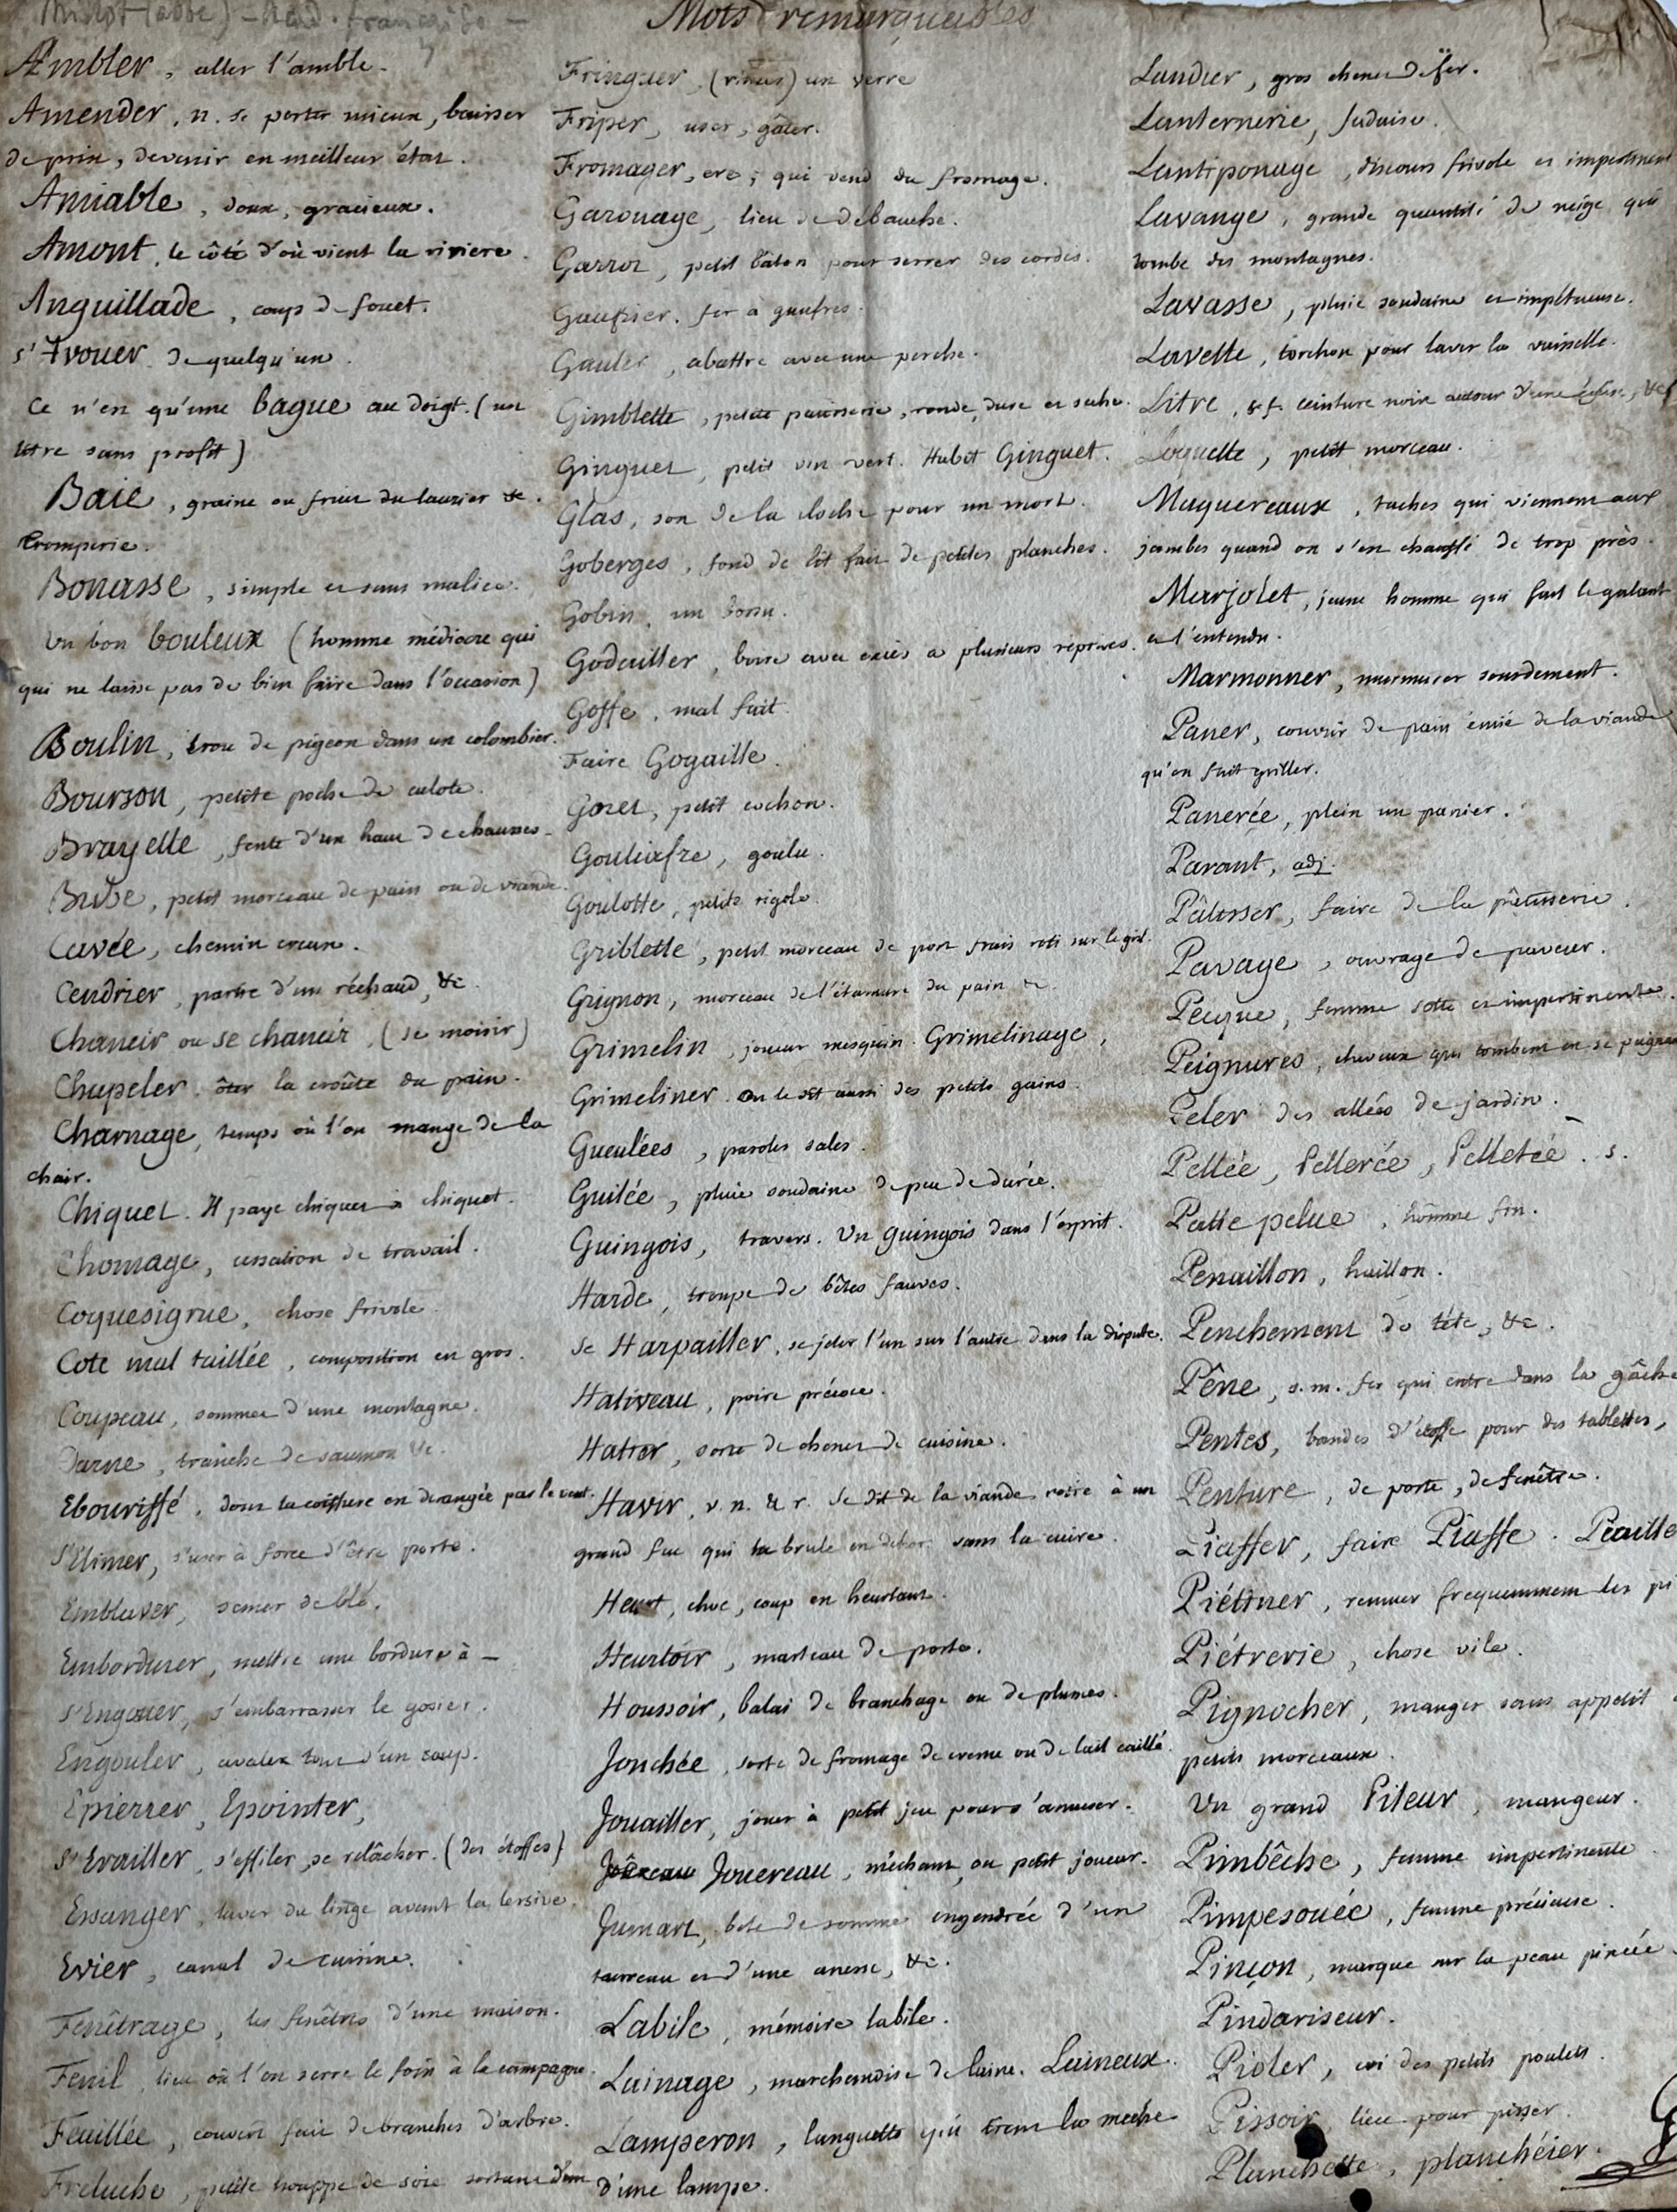 Millot (abbé) - Acad. française -
Mots remarquables
Ambler, aller l'amble.
Amender, n. se porter mieux, baisser
de prix, devenir en meilleur état.
Amiable, doux, gracieux.
Amont, le côté d'où vient la riviere.
Anguillade, coups de fouet.
s'Avouer de quelqu'un.
Ce n'est qu'une bague au doigt. (un
titre sans profit)
Baie, graine ou fruit du laurier &c.
tromperie.
Bonasse, simple et sans malice.
Un bon bouleux (homme médiocre qui
qui ne laisse pas de bien faire dans l'occasion)
Boulin, trou de pigeon dans un colombier.
Bourson, petite poche de culote.
Brayette, fente d'un haut de chausses.
Bribe, petit morceau de pain ou de viande.
Cavée, chemin creux.
Cendrier, partie d'un réchaud, &c.
Chancir ou se chancir, (se moisir)
Chapeler, ôter la croûte du pain.
Charnage, temps où l'on mange de la
chair.
Chiquet. Il paye chiquet à chiquet.
Chomage, cessation de travail.
Coquesigrue, chose frivole.
Cote mal taillée, composition en gros.
Coupeau, sommet d'une montagne.
Darne, tranche de saumon &c.
Ebouriffé, dont la coiffure est derangée par le vent.
s'Elimer, s'user à force d'être porté.
Emblaver, semer de blé.
Embordurer, mettre une bordure à -
s'Engouer, s'embarrasser le gosier.
Engouler, avaler tout d'un coup.
Epierrer, Epointer,
s'Erailler, s'effiler, se relâcher. (des étoffes)
Essanger, laver du linge avant la lersive.
Evier, canal de cuisine.
Fenêtrage, les fenêtres d'une maison.
Fenil, lieu où l'on serre le foin à la campagne.
Feuillée, couvert fait de branches d'arbre.
Freluche, petite houppe de soie sortant d'un
Fringuer, (rincer) un verre
Friper, user, gâter.
Fromager, ere; qui vend du fromage.
Garouage, lieu de debauche.
Garrot, petit bâton pour serrer des cordes.
Gaufrier, fer à gaufres.
Gauler, abattre avec une perche.
Gimblette, petite patisserie, ronde, dure et seche.
Ginguet, petit vin vert. Habit Ginguet.
Glas, son de la cloche pour un mort.
Goberges, fond de lit fait de petites planches.
Gobin, un bossu.
Godailler, boire avec excès a plusieurs reprises.
Goffe, mal fait.
Faire Gogaille.
Goret, petit cochon.
Gouliafre, goulu.
Goulotte, petite rigole.
Griblette, petit morceau de porc frais roti sur le gril.
Grignon, morceau de l'étamure du pain &c.
Grimelin, joueur mesquin. Grimelinage,
Grimeliner. on le dit aussi des petits gains.
Gueulées, paroles sales.
Guilée, pluie soudaine de peu de durée.
Guingois, travers. Un guingois dans l'esprit.
Harde, troupe de bêtes fauves.
se Harpailler, se jeter l'un sur l'autre dans la dispute.
Hativeau, poire précoce.
Hatier, sorte de chenet de cuisine.
Havir, v. n. & r. Se dit de la viande rotie à un
grand feu qui la brule en dehors sans la cuire.
Heurt, choc, coup en heurtant.
Heurtoir, marteau de porte.
Houssoir, balai de branchage ou de plumes.
Jonchée, sorte de fromage de creme ou de lait caillé.
Jouailler, jouer à petit jeu pour s'amuser.
Jouereau, méchant, ou petit joueur.
Jumart, bete de somme engendrée d'un
taureau et d'une anesse, &c.
Labile, mémoire labile.
Lainage, marchandise de laine. Laineux.
Lamperon, languette qui tient la meche
d'une lampe.
Landier, gros chenet de fer.
Lanternerie, fadaise.
Lantiponage, discours frivole et impertinent
Lavange, grande quantité de neige qui
tombe des montagnes.
Lavasse, pluie soudaine et impétueuse.
Lavette, torchon pour laver la vaisselle.
Litre, s. f. ceinture noire autour d'une église, &c
Loquette, petit morceau.
Maquereaux, taches qui viennent aux
jambes quand on s'est chauffé de trop près.
Marjolet, jeune homme qui fait le galant
et l'entendu.
Marmonner, murmurer sourdement.
Paner, couvrir de pain émié de la viande
qu'on fait griller.
Panerée, plein un panier.
Parant, adj.
Pâtisser, faire de la pâtisserie.
Pavage, ouvrage de paveur.
Pecque, femme sotte et impertinente.
Peignures, cheveux qui tombent en se peignant
Peler des allées de jardin.
Pellée, Pellerée, Pelletée. s.
Patte pelue, homme fin.
Penaillon, haillon.
Penchement de tête, &c.
Pêne, s. m. fer qui entre dans la gâche
Pentes, bandes d'étoffe pour des tablettes,
Penture, de porte, de fenêtre.
Piaffer, faire Piaffe. Piaille
Piétiner, remuer frequemment les pi
Piétrerie, chose vile.
Pignocher, manger sans appetit
petits morceaux.
Un grand Pileur, mangeur.
Pimbêche, femme impertinente
Pimpesouée, femme précieuse.
Pinçon, marque sur la peau pincée.
Pindariseur.
Pioler, cri des petits poulets.
Pissoir, lieu pour pisser.
Planchette, planchéier.